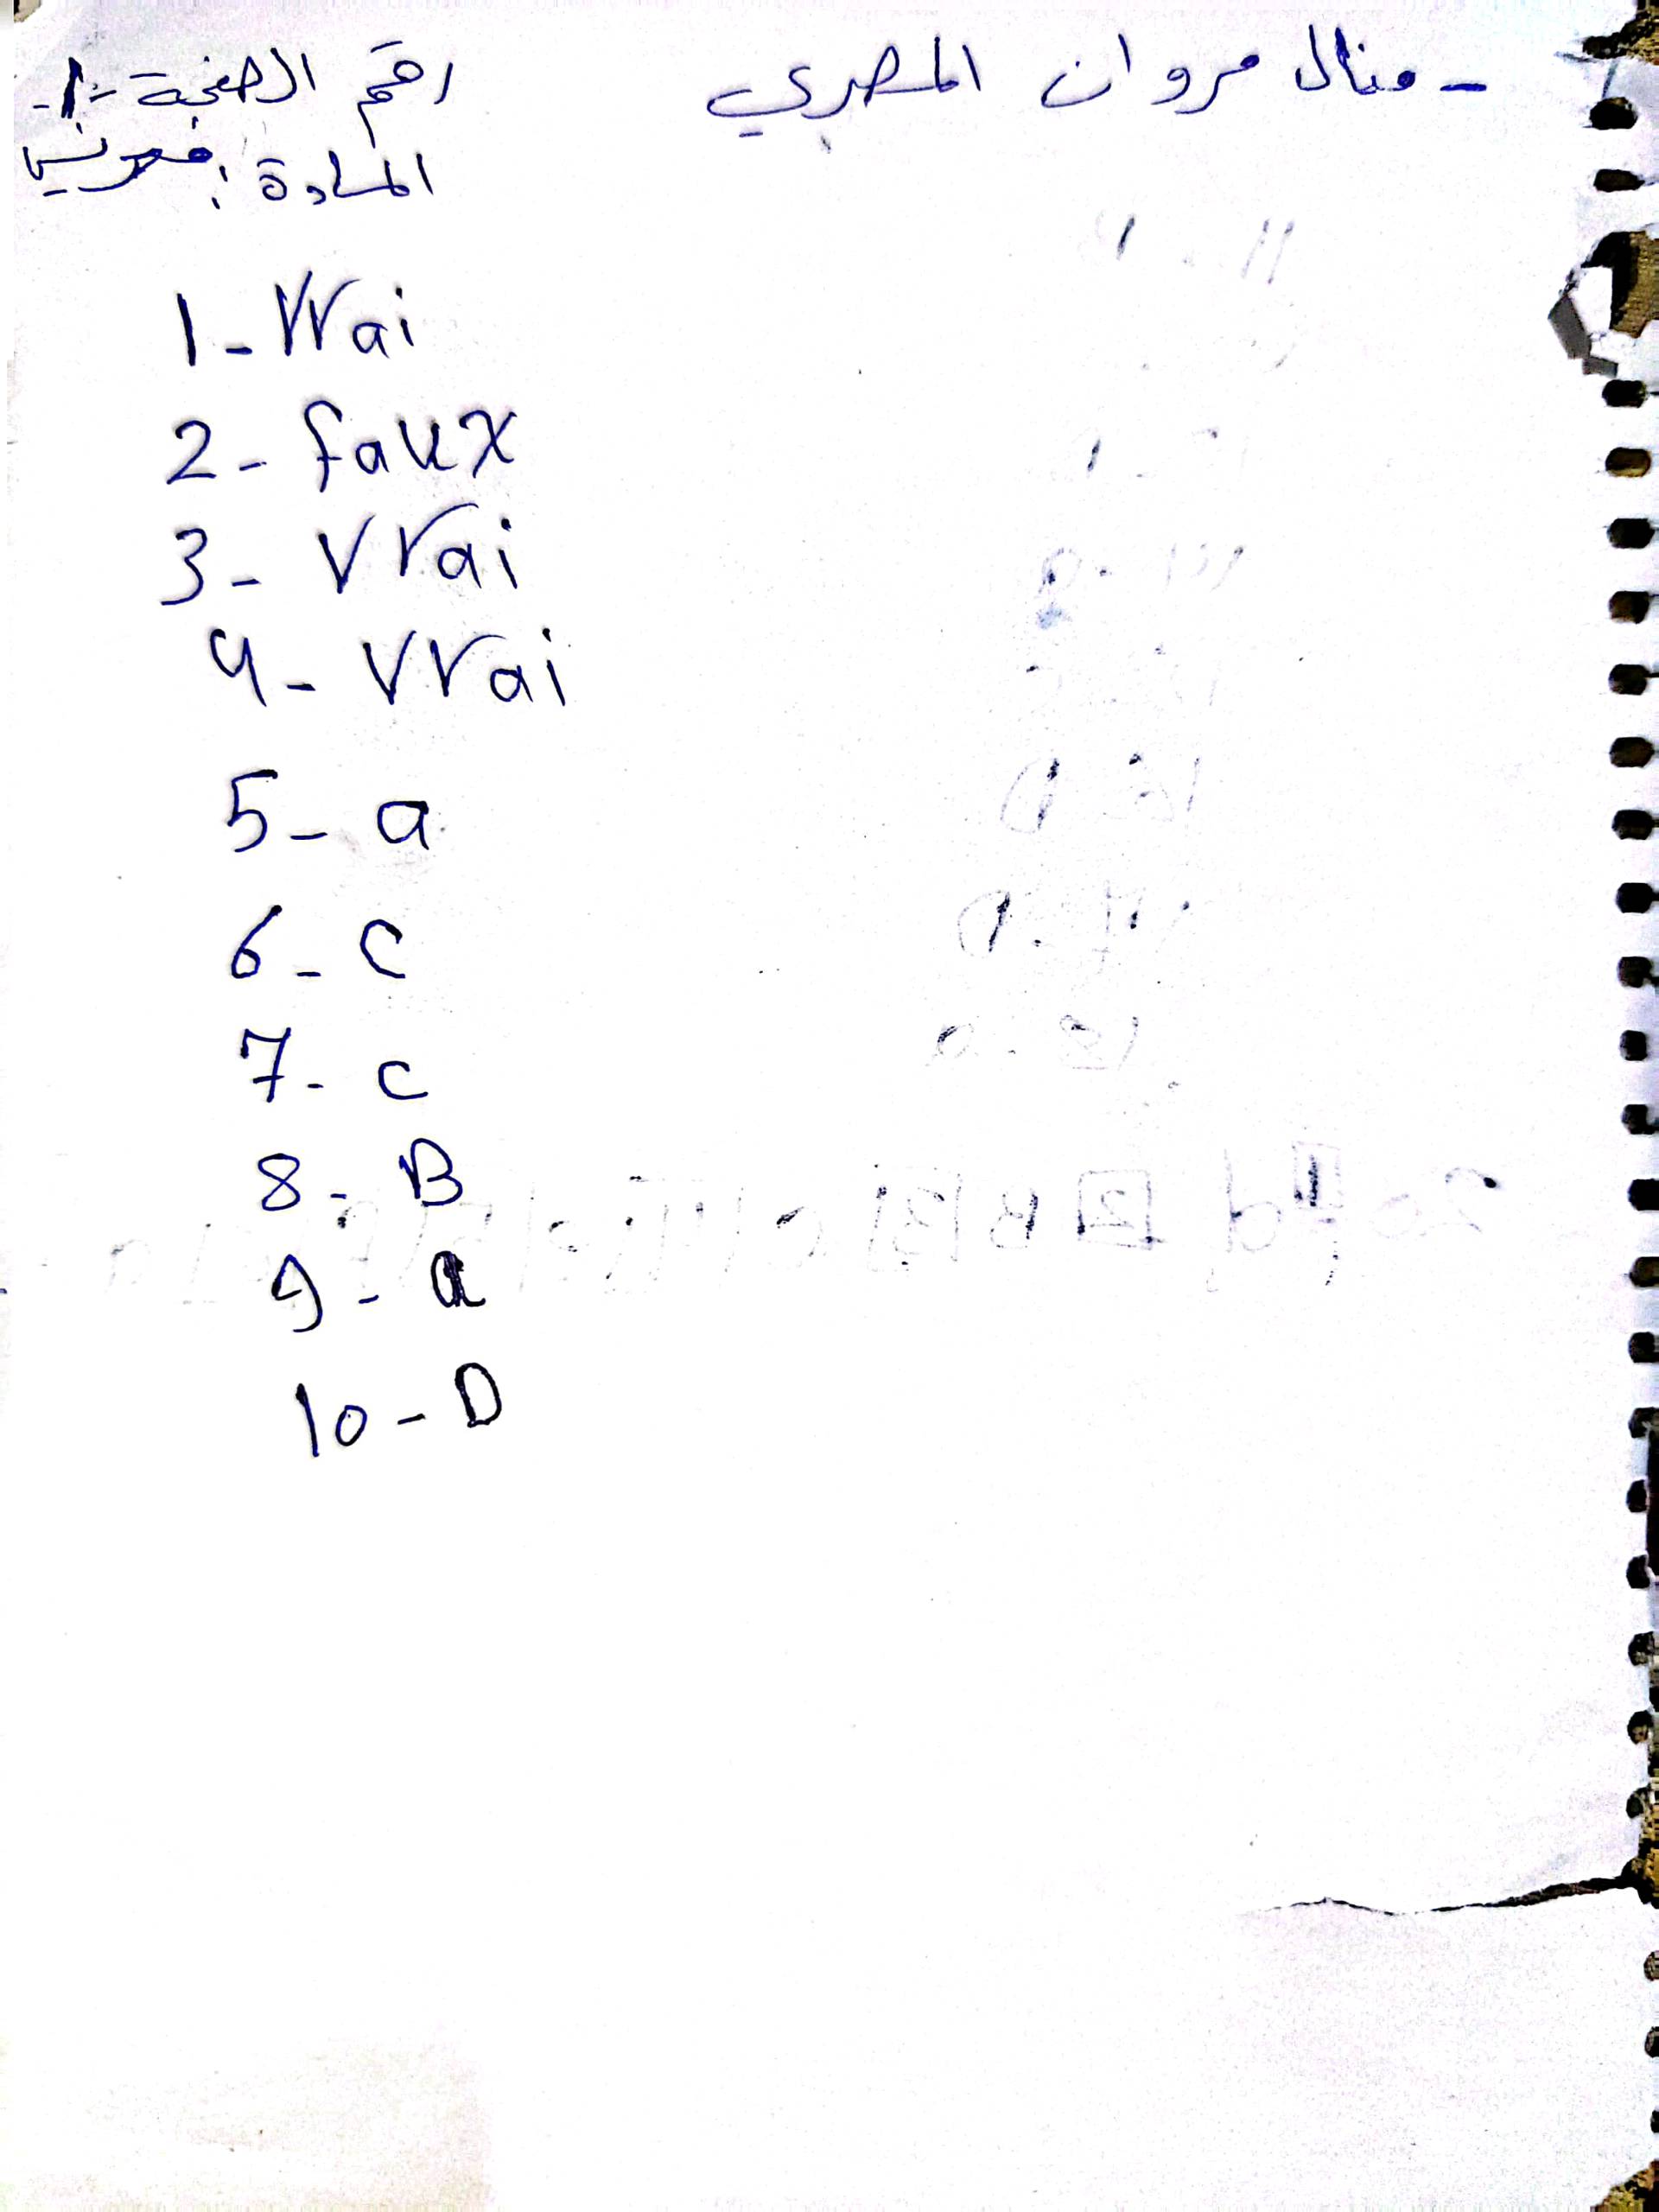 - منال مروان المصري
رقم الصفحة -1-
المادة :
1 - Vrai
2 - faux
3 - Vrai
4 - Vrai
5 - a
6 - C
7 - C
8 - B
9 - a
10 - D